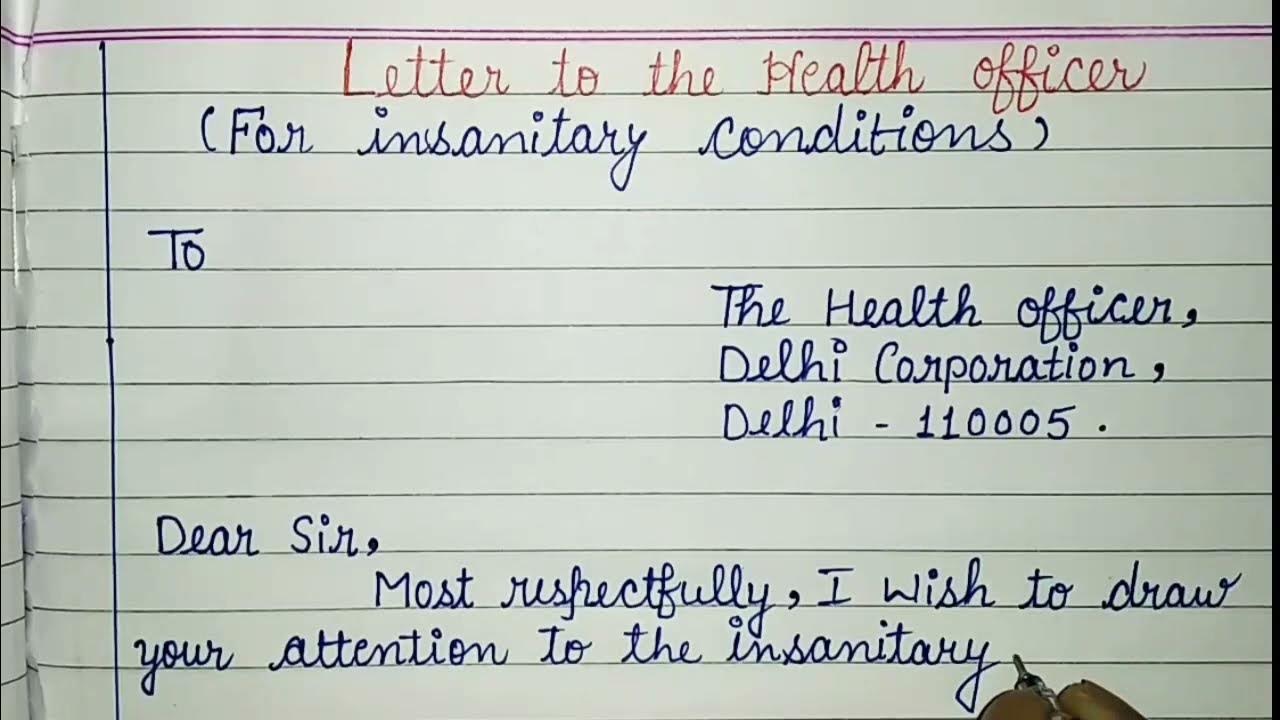 Letter to the Health officer
(For insanitary conditions)
To
The Health officer,
Delhi Corporation,
Delhi - 110005.
Dear Sir,
Most respectfully, I wish to draw
your attention to the insanitary